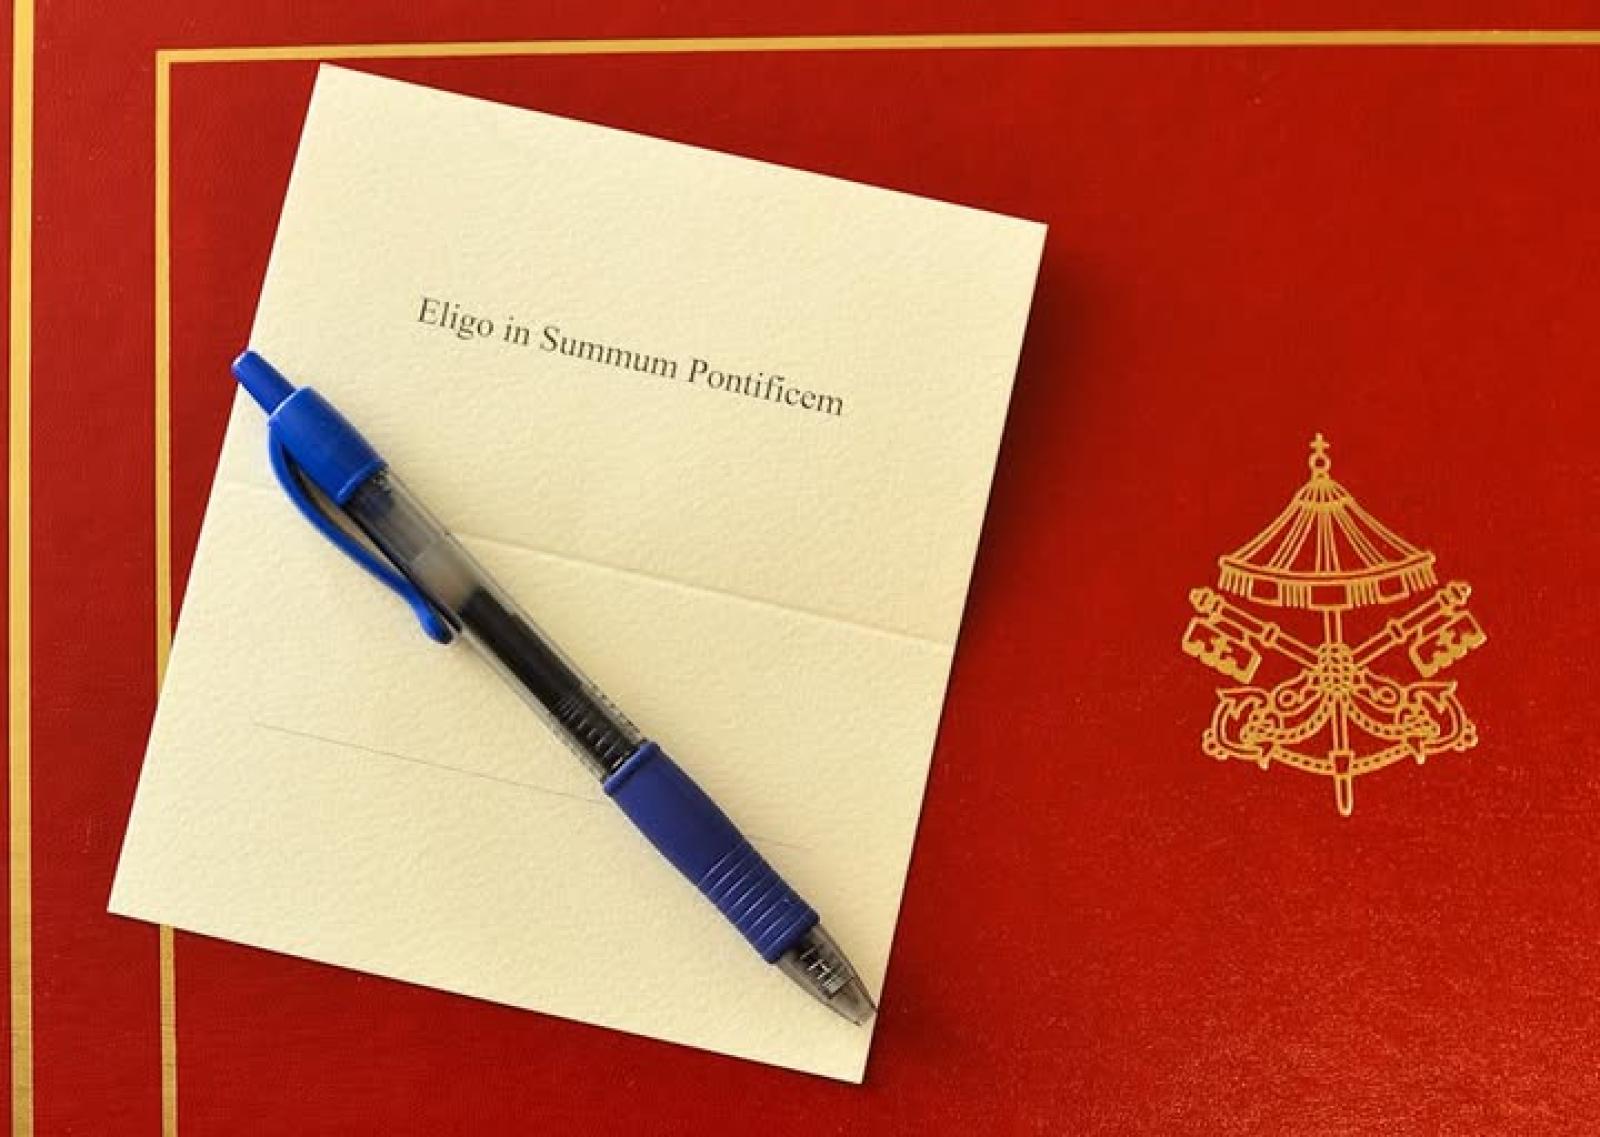 Eligo in Summum Pontificem